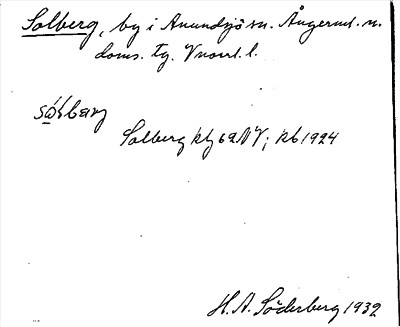 Solberg, by i Anundsjö sn. Ångerml. n.
doms. tg. Vnorrl. l.
Solberg kbg 62 NV; Kb 1924
H. A. Söderberg 1932